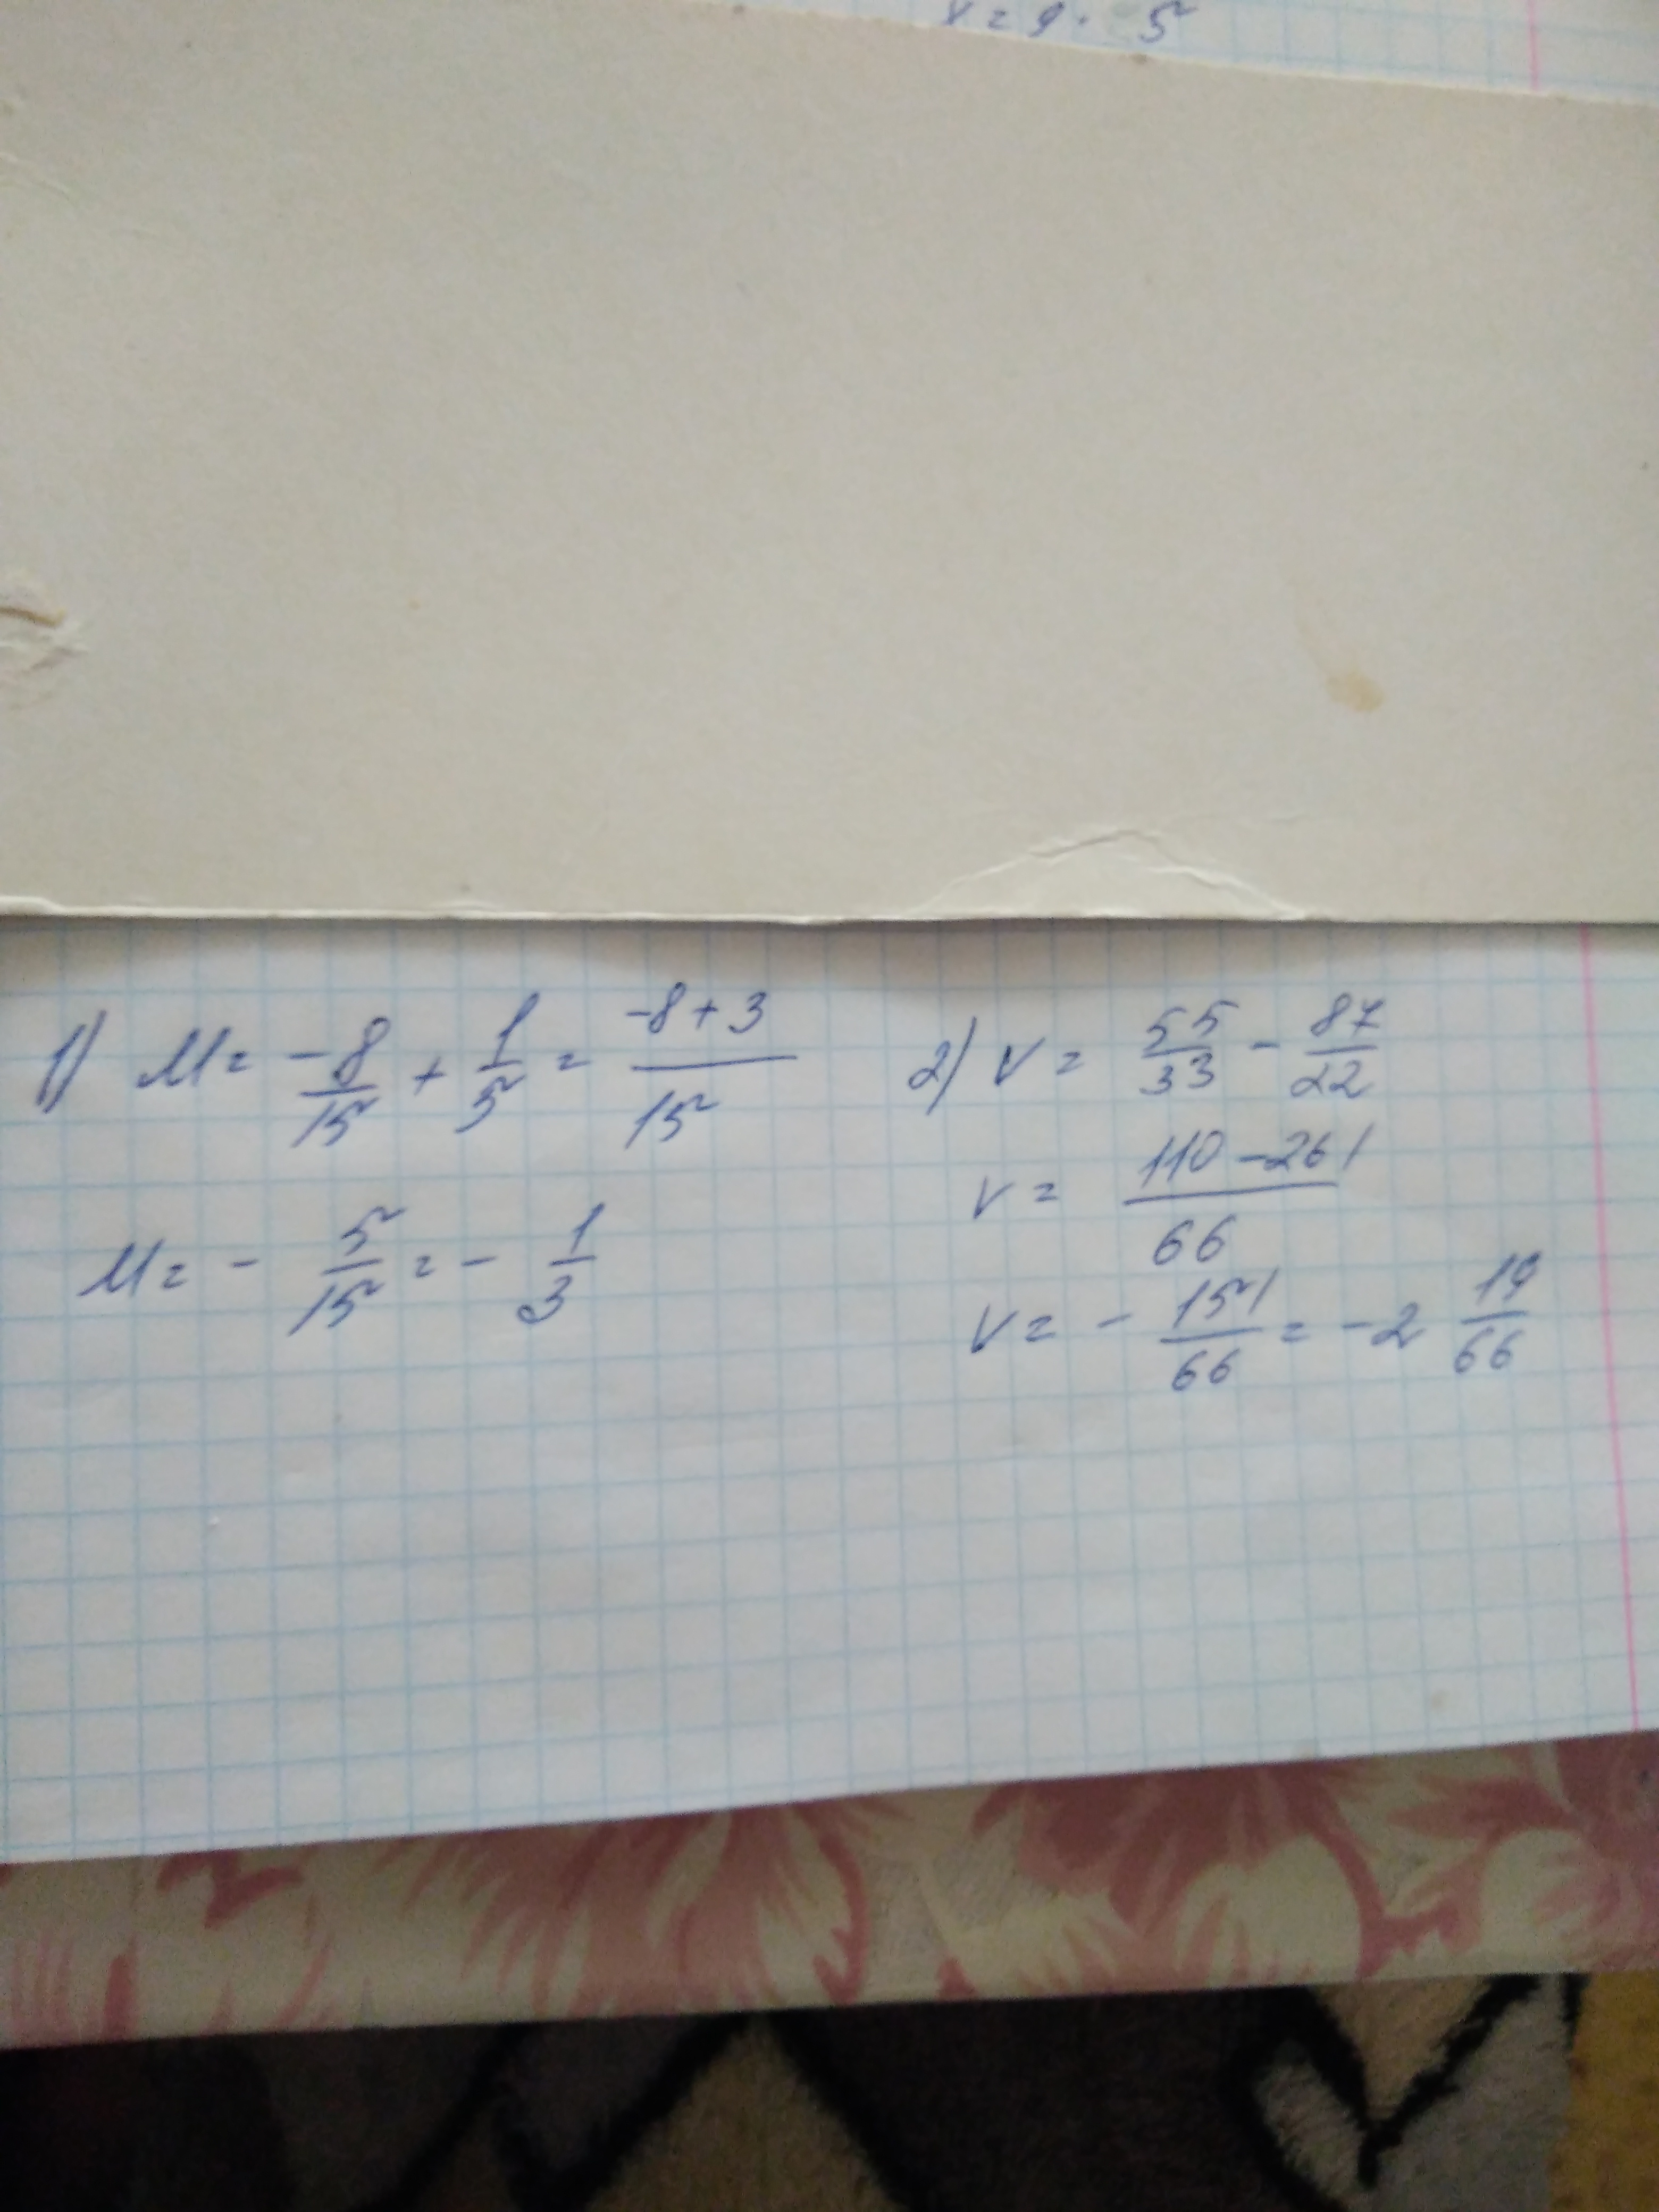 1) M = -8/15 + 1/5 = -8+3/15
M = - 5/15 = - 1/3
2) V = 55/33 - 87/22
V = 110-261/66
V = - 151/66 = -2 19/66